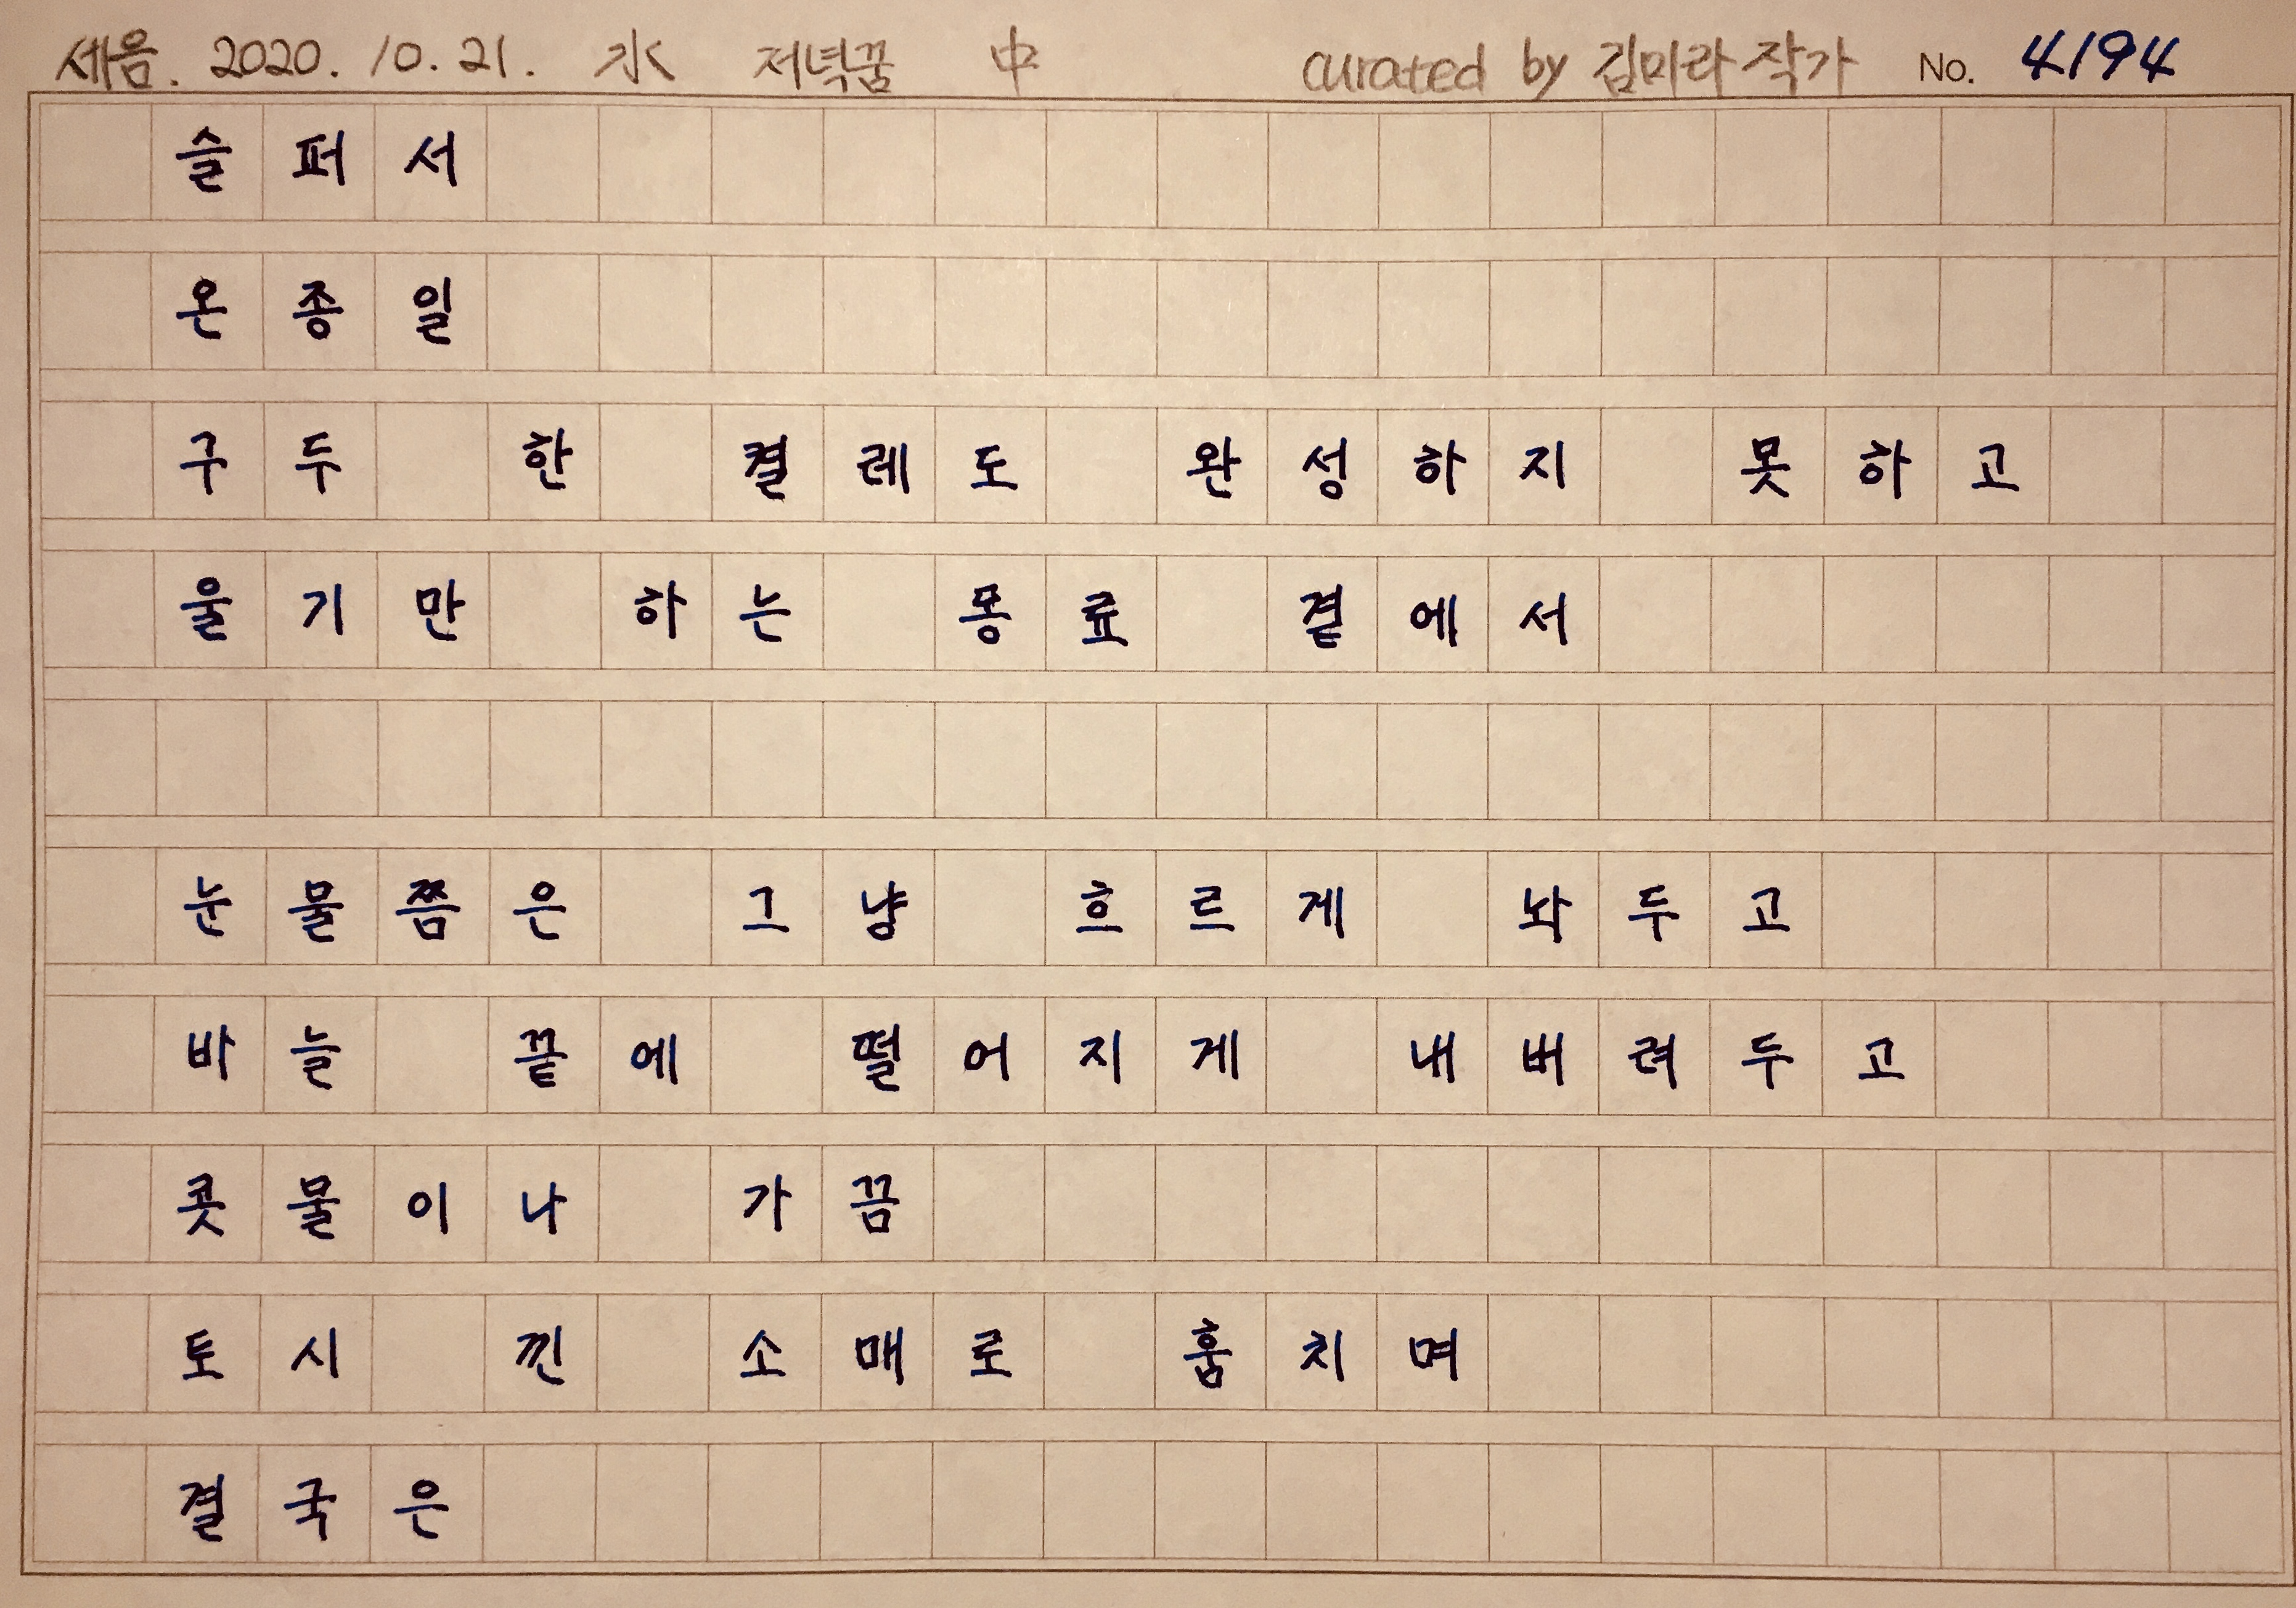 세음. 2020. 10. 21. 水 저녁꿈 中 curated by 김미라 작가 No. 4194
슬퍼서
온종일
구두 한 켤레도 완성하지 못하고
울기만 하는 동료 곁에서
눈물쯤은 그냥 흐르게 놔두고
바늘 끝에 떨어지게 내버려두고
콧물이나 가끔
토시 낀 소매로 훔치며
결국은